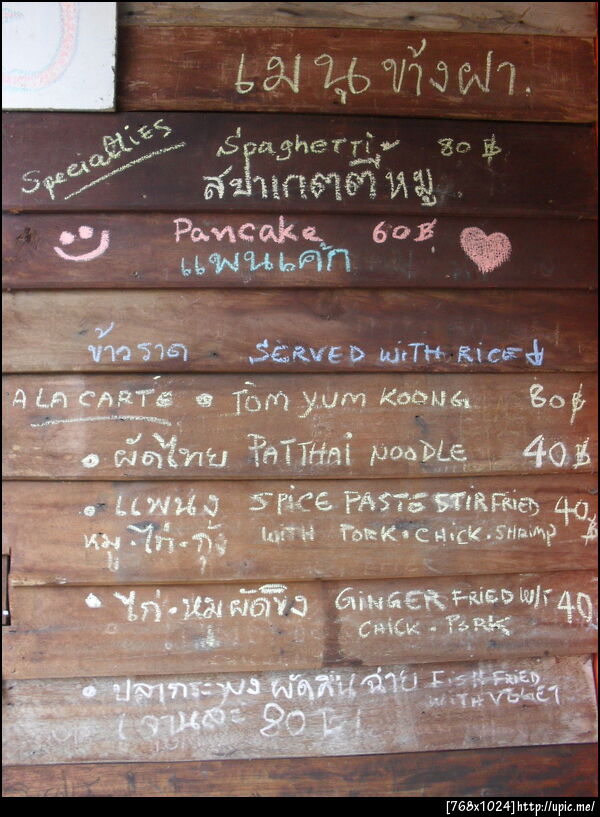 เมนูข้างฝา.
Specialties Spaghetti 80 ฿
สปาเกตตี้หมู
Pancake 60฿
แพนเค้ก
ข้าวราด SERVED WITH RICE
A LA CARTE • TOM YUM KOONG 80฿
• ผัดไทย PATTHAI NOODLE 40฿
• แพนง SPICE PASTE STIR FRIED 40฿
หมู・ไก่・กุ้ง WITH PORK・CHICK・SHRIMP
• ไก่・หมูผัดขิง GINGER FRIED W/T 40
CHICK・PORK
• ปลากระพง ผัดคื่นฉ่าย FISH FRIED
WITH VEGGET
(จานละ 80
[768x1024]http://upic.me/